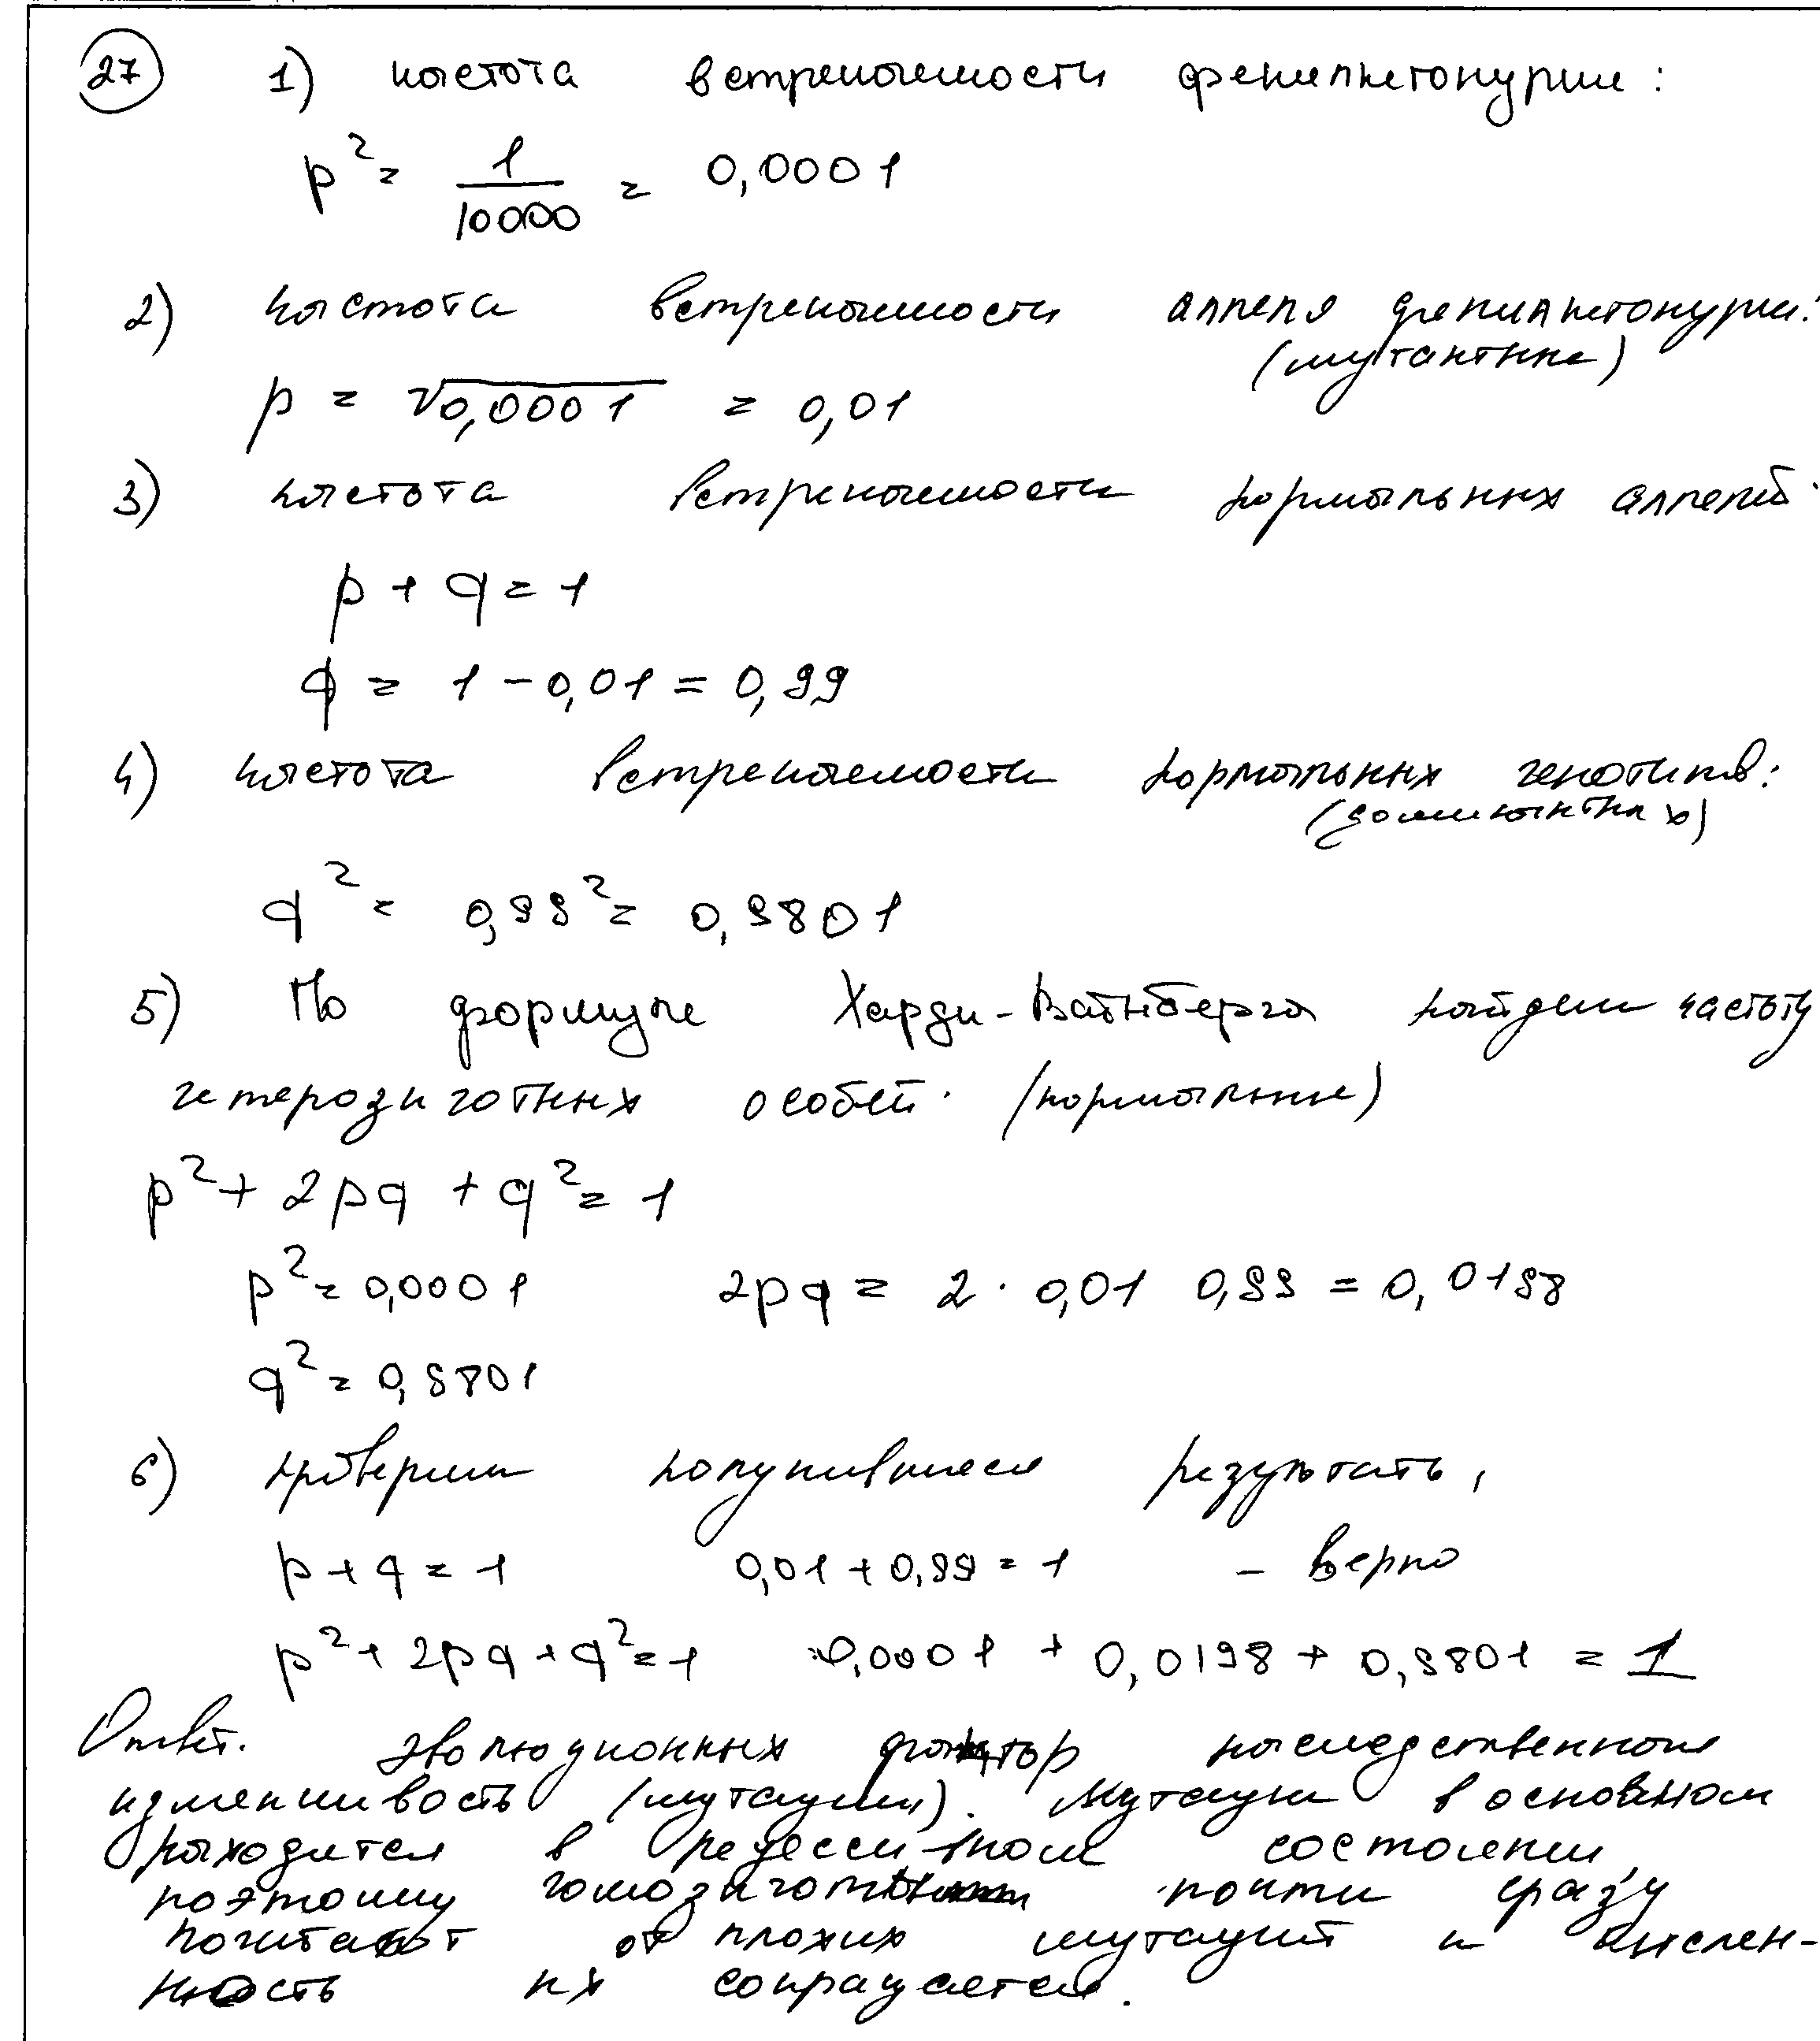 27 1) частота встречаемости фенилкетонурии:
p² = 1/10000 = 0,0001
2) частота встречаемости аллеля фенилкетонурии:
(мутантные)
p = √0,0001 = 0,01
3) частота встречаемости нормальных аллелей
p + q = 1
q = 1 - 0,01 = 0,99
4) частота встречаемости нормальных генотипов:
(доминантных)
q² = 0,99² = 0,9801
5) По формуле Харди-Вайнберга найдем частоту
гетерозиготных особей. (нормальные)
p² + 2pq + q² = 1
p² = 0,0001 2pq = 2 · 0,01 0,99 = 0,0198
q² = 0,9801
6) проверим получившиеся результаты,
p + q = 1 0,01 + 0,99 = 1 - верно
p² + 2pq + q² = 1 0,0001 + 0,0198 + 0,9801 = 1
Ответ. эволюционных фактор наследственная
изменчивость (мутации). Мутации в основном
находятся в рецессивном состоянии,
поэтому гомозиготы почти сразу
погибают от плохих мутаций и числен-
ность их сокращается.